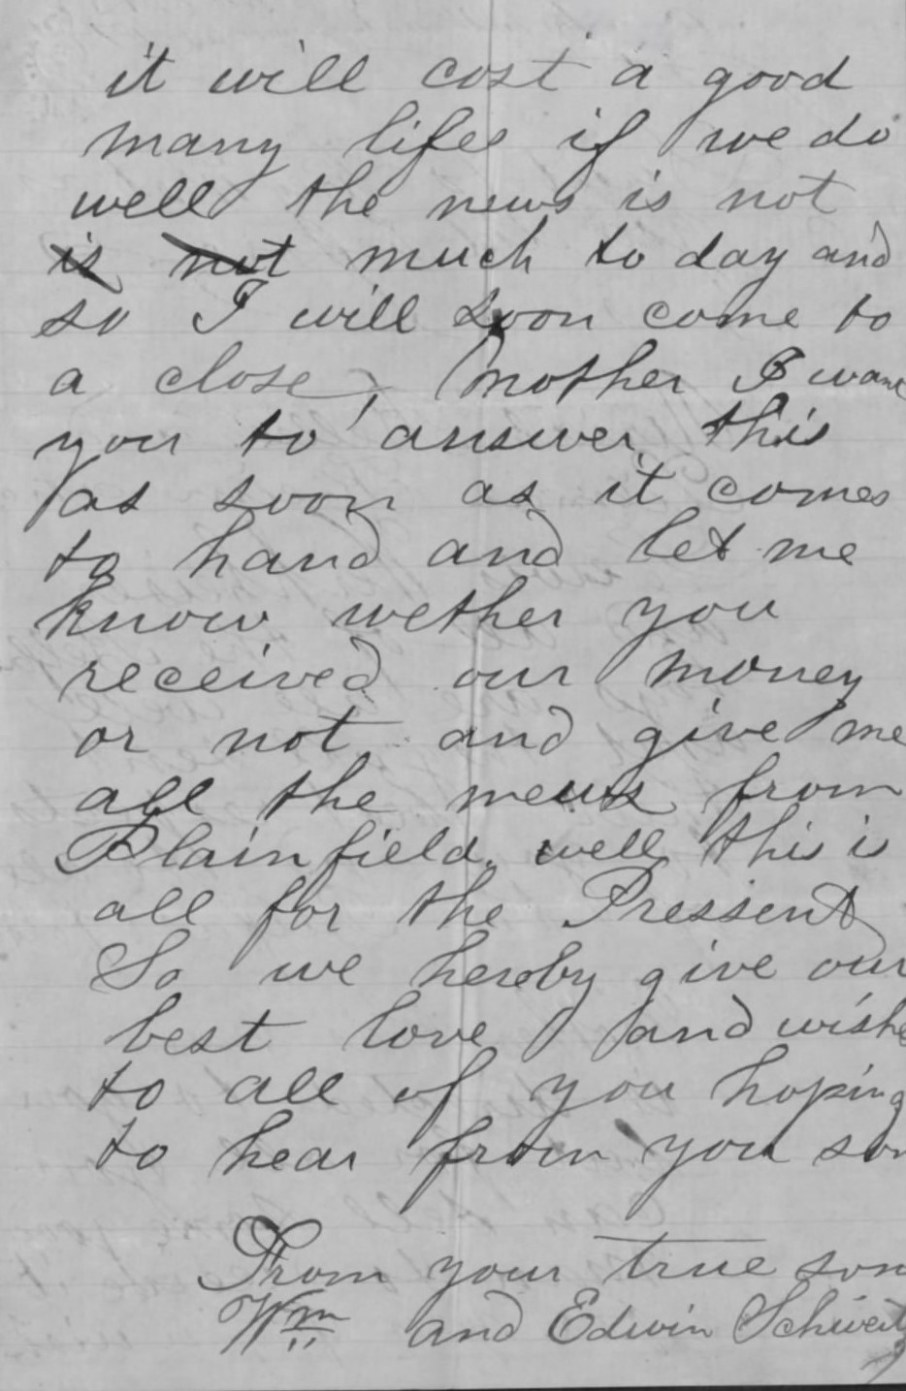 it will cost a good
many lifes if we do
well the news is not
is not much to day and
so I will soon come to
a close, Mother I want
you to answer this
as soon as it comes
to hand and let me
know wether you
received our money
or not and give me
all the news from
Plainfield. well this is
all for the Pressent
So we hereby give our
best love and wishe
to all of you hoping
to hear from you son
From your true son
Wm and Edwin Schwei